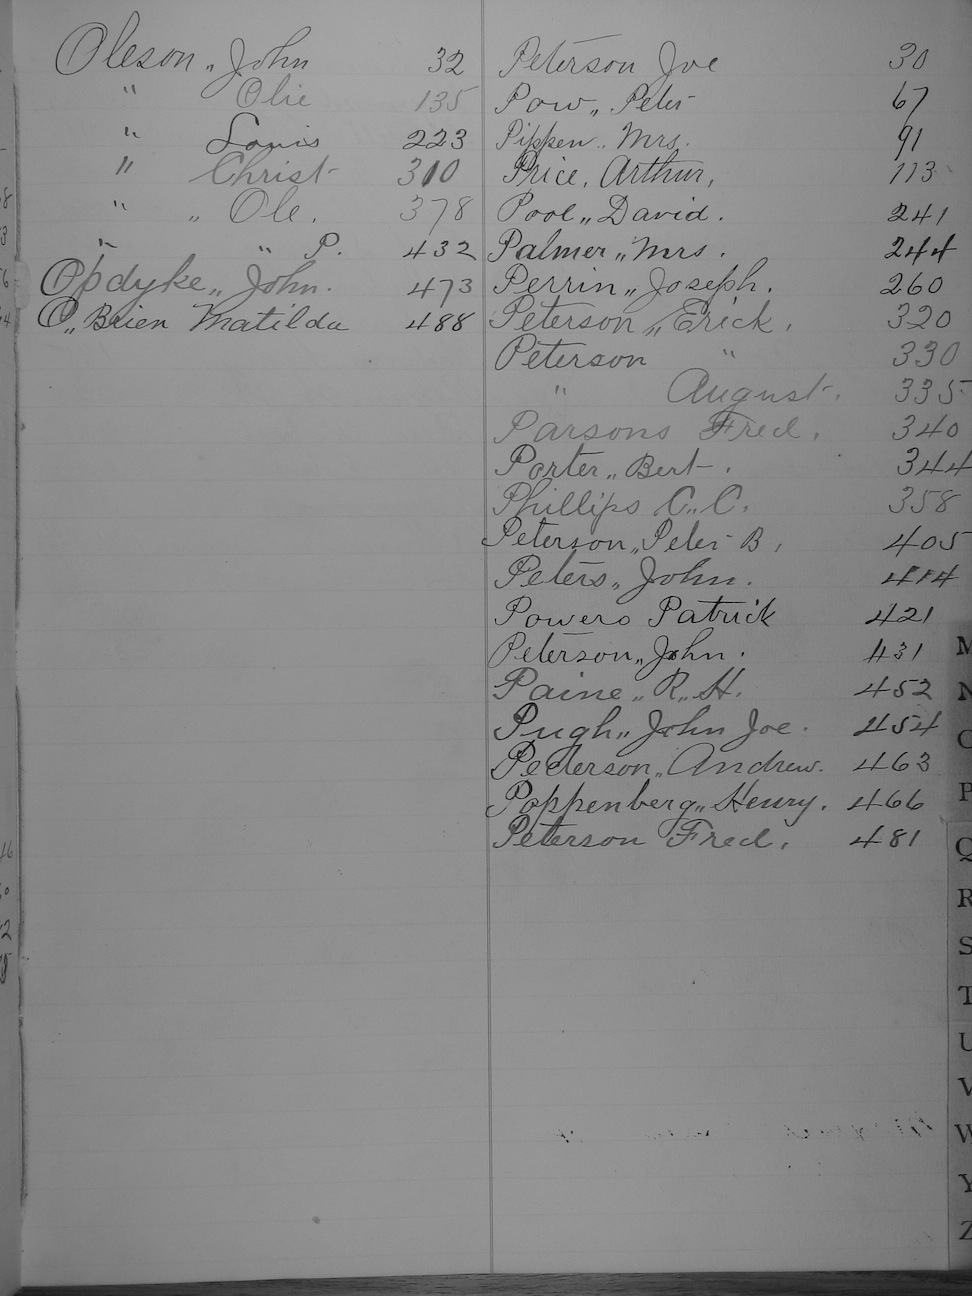 Oleson,, John 32
" Olie 135
" Louis 223
" Christ 310
" " Ole. 378
" " P. 432
Opdyke,, John. 473
O,, Brien Matilda 488
Peterson Joe 30
Pow,, Peter 67
Pippen,, Mrs. 91
Price, Arthur, 113
Pool,, David. 241
Palmer,, Mrs. 244
Perrin,, Joseph. 260
Peterson,, Erick. 320
Peterson " 330
" August. 335
Parsons Fred. 340
Porter,, Bert. 344
Phillips C.,C. 358
Peterson,, Peter B, 405
Peters,, John. 414
Powers Patrick 421
Peterson,, John. 431
Paine,, R,, H. 452
Pugh,, John Joe. 454
Pederson,, Andrew. 463
Poppenberg,, Henry. 466
Peterson Fred. 481
M
N
O
P
Q
R
S
T
U
V
W
Y
Z